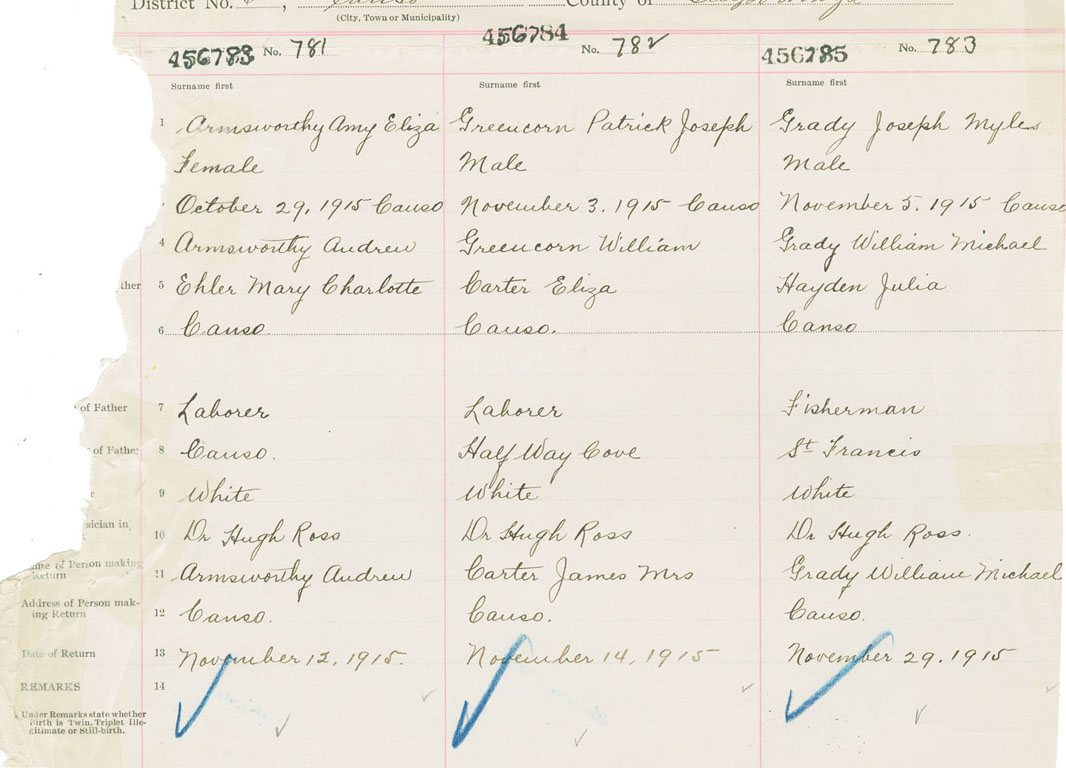 District No. , Canso County of
(City, Town or Municipality)
456783 No. 781 456784 No. 782 456785 No. 783
Surname first Surname first Surname first
1 Armsworthy Amy Eliza Greencorn Patrick Joseph Grady Joseph Myles
Female Male Male
October 29, 1915 Canso November 3. 1915 Canso November 5. 1915 Canso
4 Armsworthy Andrew Greencorn William Grady William Michael
ther 5 Ehler Mary Charlotte Carter Eliza Hayden Julia
6 Canso. Canso. Canso
of Father 7 Laborer Laborer Fisherman
of Father 8 Canso. Half Way Cove St Francis
r 9 White White White
sician in 10 Dr Hugh Ross Dr Hugh Ross Dr Hugh Ross.
me of Person making
Return 11 Armsworthy Andrew Carter James Mrs Grady William Michael
Address of Person mak-
ing Return 12 Canso. Canso. Canso.
Date of Return 13 November 12, 1915. November 14, 1915 November 29. 1915
REMARKS 14
Under Remarks state whether
birth is Twin, Triplet Ille-
gitimate or Still-birth.